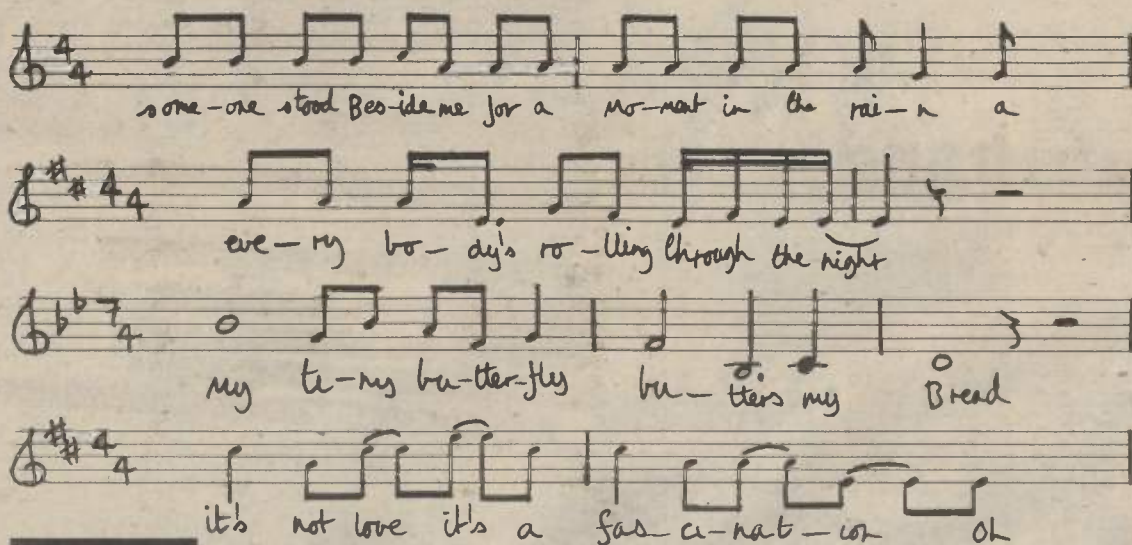 some-one stood Bes-ide me for a mo-ment in the rai-n a
eve-ry bo-dy's ro-lling through the night
my ti-ny bu-tter-fly bu-tters my Bread
it's not love it's a fas-ci-nat-ion oh